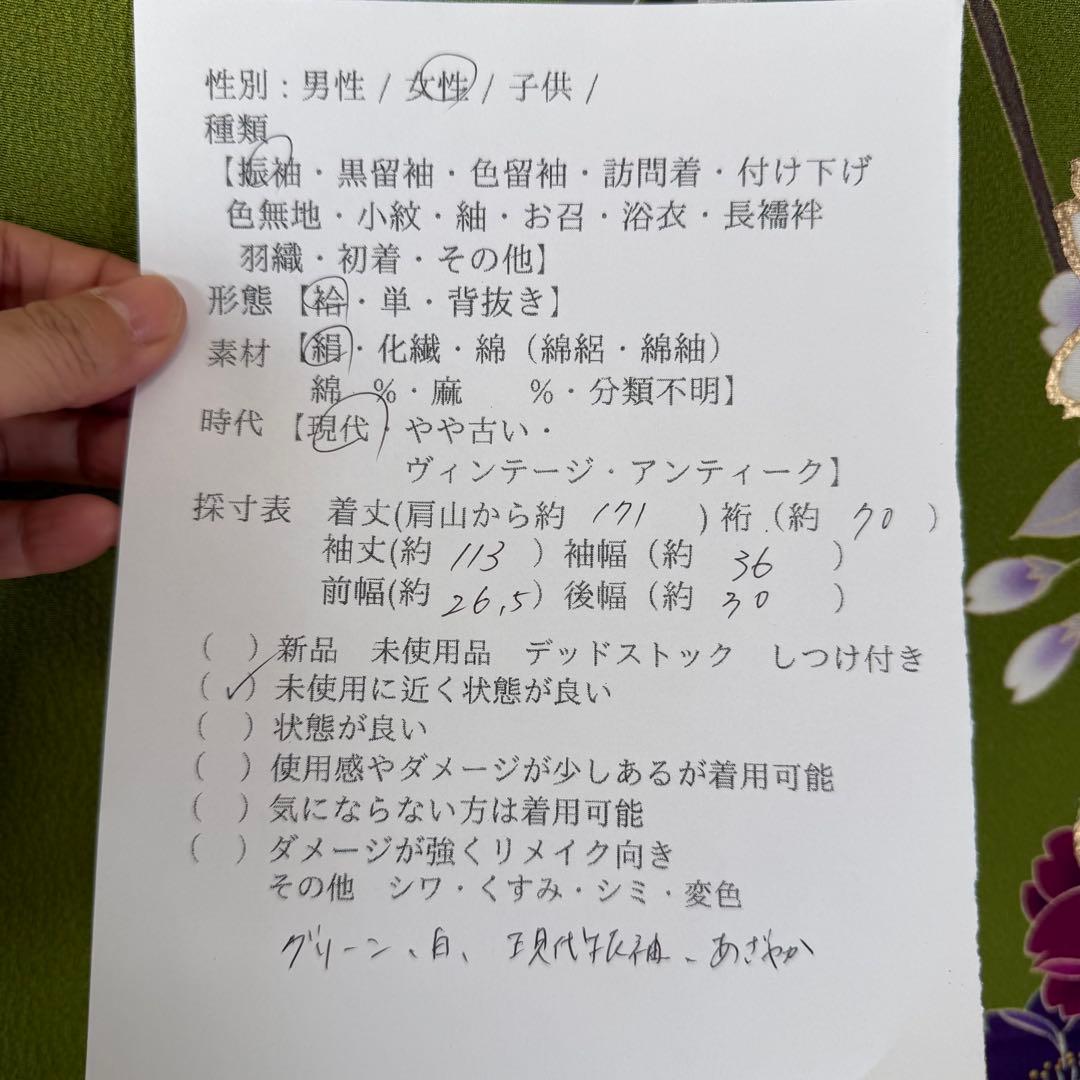 性別：男性 / 女性 / 子供 /
種類
【振袖・黒留袖・色留袖・訪問着・付け下げ
色無地・小紋・紬・お召・浴衣・長襦袢
羽織・初着・その他】
形態【袷・単・背抜き】
素材【絹・化繊・綿（綿絽・綿紬）
綿 %・麻 %・分類不明】
時代【現代・やや古い・
ヴィンテージ・アンティーク】
採寸表 着丈(肩山から約 171 ) 裄（約 70 ）
袖丈(約 113 ）袖幅（約 36 ）
前幅(約 26.5）後幅（約 30 ）
（ ）新品 未使用品 デッドストック しつけ付き
（✓）未使用に近く状態が良い
（ ）状態が良い
（ ）使用感やダメージが少しあるが着用可能
（ ）気にならない方は着用可能
（ ）ダメージが強くリメイク向き
その他 シワ・くすみ・シミ・変色
グリーン、白、現代振袖、あざやか